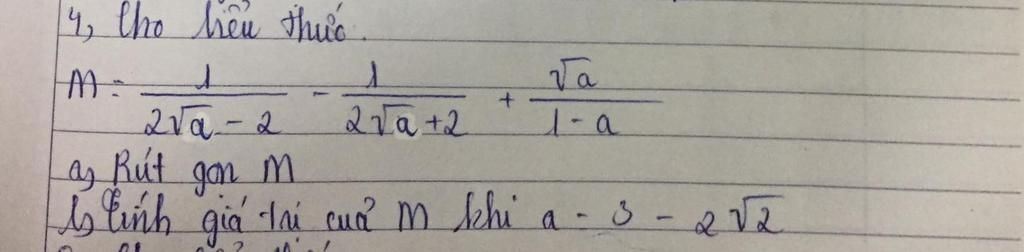 4, Cho biểu thức.
M = \frac{1}{2\sqrt{a} - 2} - \frac{1}{2\sqrt{a} + 2} + \frac{\sqrt{a}}{1 - a}
a, Rút gọn M
b, Tính giá trị cuả M khi a = 3 - 2\sqrt{2}